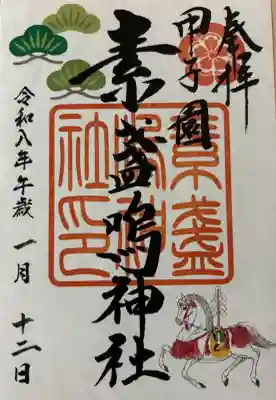 奉拝
甲子園
素盞嗚神社
令和八年午歳 一月 十二日
素盞
社印